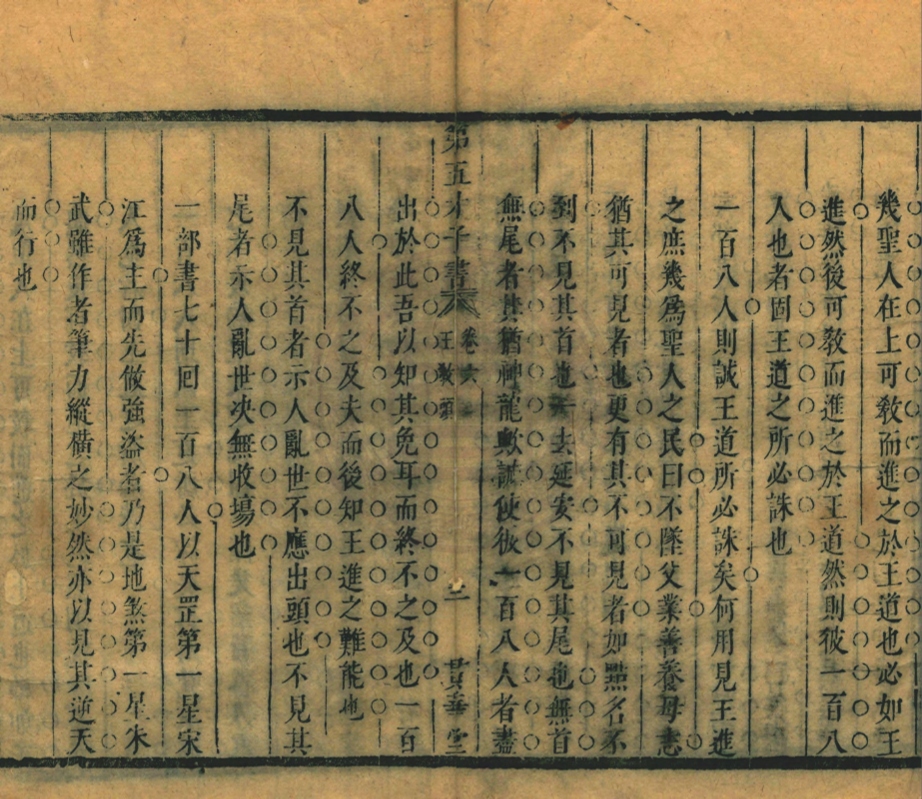 幾聖人在上可敎而進之於王道也必如王
進然後可敎而進之於王道然則彼一百八
人也者固王道之所必誅也
一百八人則誠王道所必誅矣何用見王進
之庶幾爲聖人之民曰不墜父業善養母志
猶其可見者也更有其不可見者如點名不
到不見其首也一去延安不見其尾也無首
無尾者其猶神龍歟誠使彼一百八人者盡
第五才子書 卷六 王敎頭 二 貫華堂
出於此吾以知其免耳而終不之及也一百
八人終不之及夫而後知王進之難能也
不見其首者示人亂世不應出頭也不見其
尾者示人亂世决無收塲也
一部書七十回一百八人以天罡第一星宋
江爲主而先做強盜者乃是地煞第一星朱
武雖作者筆力縱橫之妙然亦以見其逆天
而行也